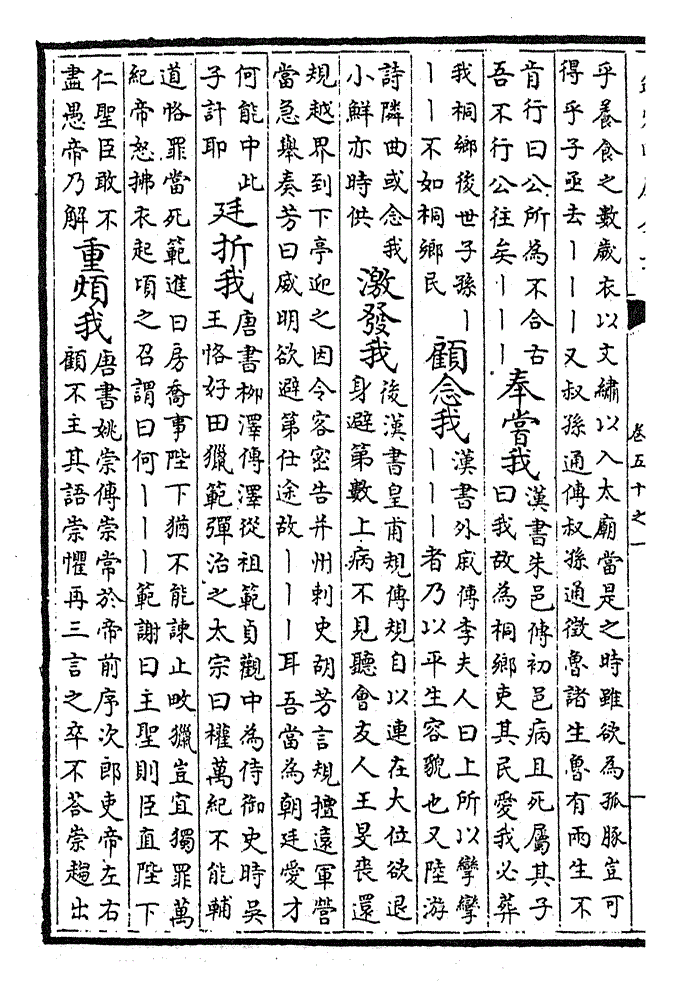 卷五十之一
乎養食之數歲衣以文繡以入太廟當是之時雖欲為孤豚豈可
得乎子亟去丨丨丨又叔孫通傳叔孫通徵魯諸生魯有兩生不
肯行曰公所為不合古
吾不行公往矣丨丨丨
奉嘗我
漢書朱邑傳初邑病且死屬其子
曰我故為桐鄉吏其民愛我必葬
我桐鄉後世子孫丨
丨丨不如桐鄉民
顧念我
漢書外戚傳李夫人曰上所以攣攣
丨丨丨者乃以平生容貌也又陸游
詩隣曲或念我
小鮮亦時供
激發我
後漢書皇甫規傳規自以連在大位欲退
身避第數上病不見聽會友人王旻喪還
規越界到下亭迎之因令客密告并州刺史胡芳言規擅遠軍營
當急舉奏芳曰威明欲避第仕途故丨丨丨耳吾當為朝廷愛才
何能中此
子計耶
廷折我
唐書柳澤傳澤從祖範貞觀中為侍御史時吳
王恪好田獵範彈治之太宗曰權萬紀不能輔
道恪罪當死範進曰房喬事陛下猶不能諫止畋獵豈宜獨罪萬
紀帝怒拂衣起頃之召謂曰何丨丨丨範謝曰主聖則臣直陛下
仁聖臣敢不
盡愚帝乃解
重煩我
唐書姚崇傳崇常於帝前序次郎吏帝左右
顧不主其語崇懼再三言之卒不荅崇趨出